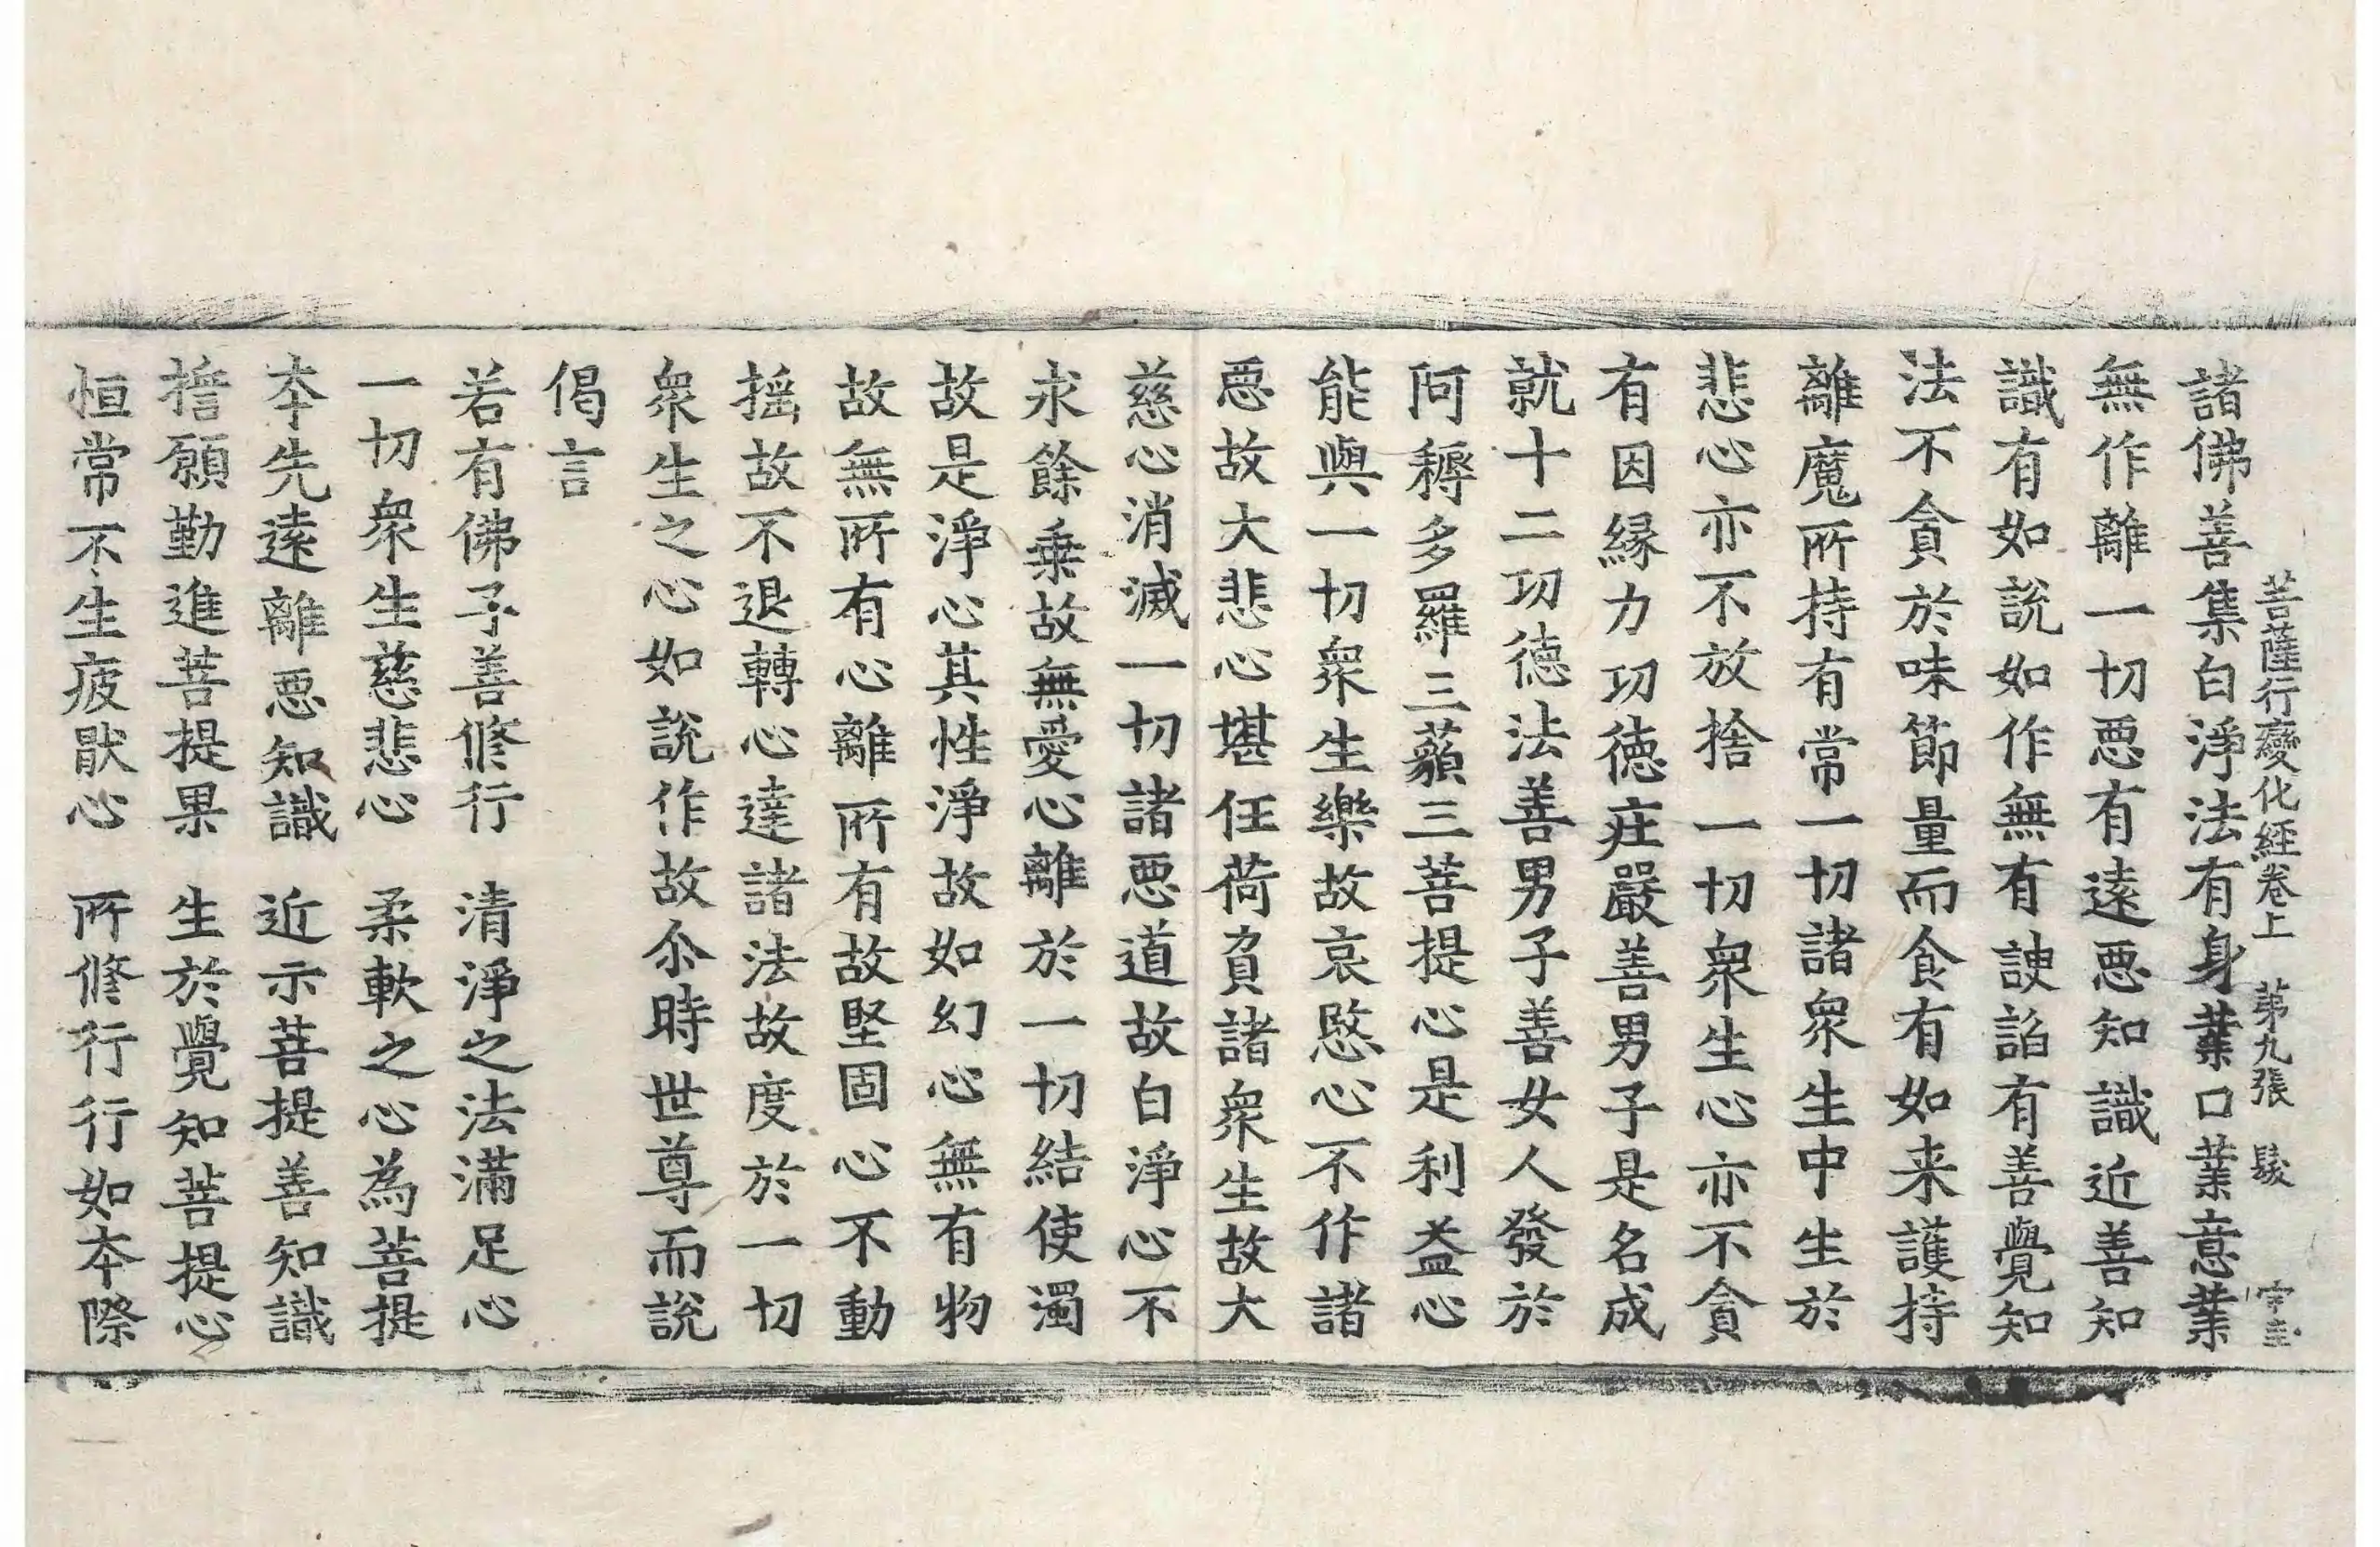 菩薩行變化經卷上 第九張 髮
諸佛善集白淨法有身業口業意業
無作離一切惡有遠惡知識近善知
識有如說如作無有諛諂有善覺知
法不貪於味節量而食有如来護持
離魔所持有常一切諸衆生中生於
悲心亦不放捨一切衆生心亦不貪
有因緣力功德庄嚴善男子是名成
就十二功德法善男子善女人發於
阿耨多羅三藐三菩提心是利益心
能與一切衆生樂故哀愍心不作諸
惡故大悲心堪任荷負諸衆生故大
慈心消滅一切諸惡道故白淨心不
求餘乗故無愛心離於一切結使濁
故是淨心其性淨故如幻心無有物
故無所有心離所有故堅固心不動
摇故不退轉心達諸法故度於一切
衆生之心如說作故尒時世尊而說
偈言
若有佛子善修行 清淨之法滿足心
一切衆生慈悲心 柔軟之心為菩提
本先遠離惡知識 近示菩提善知識
擔願勤進菩提果 生於覺知菩提心
恒常不生疲猒心 所修行行如本際